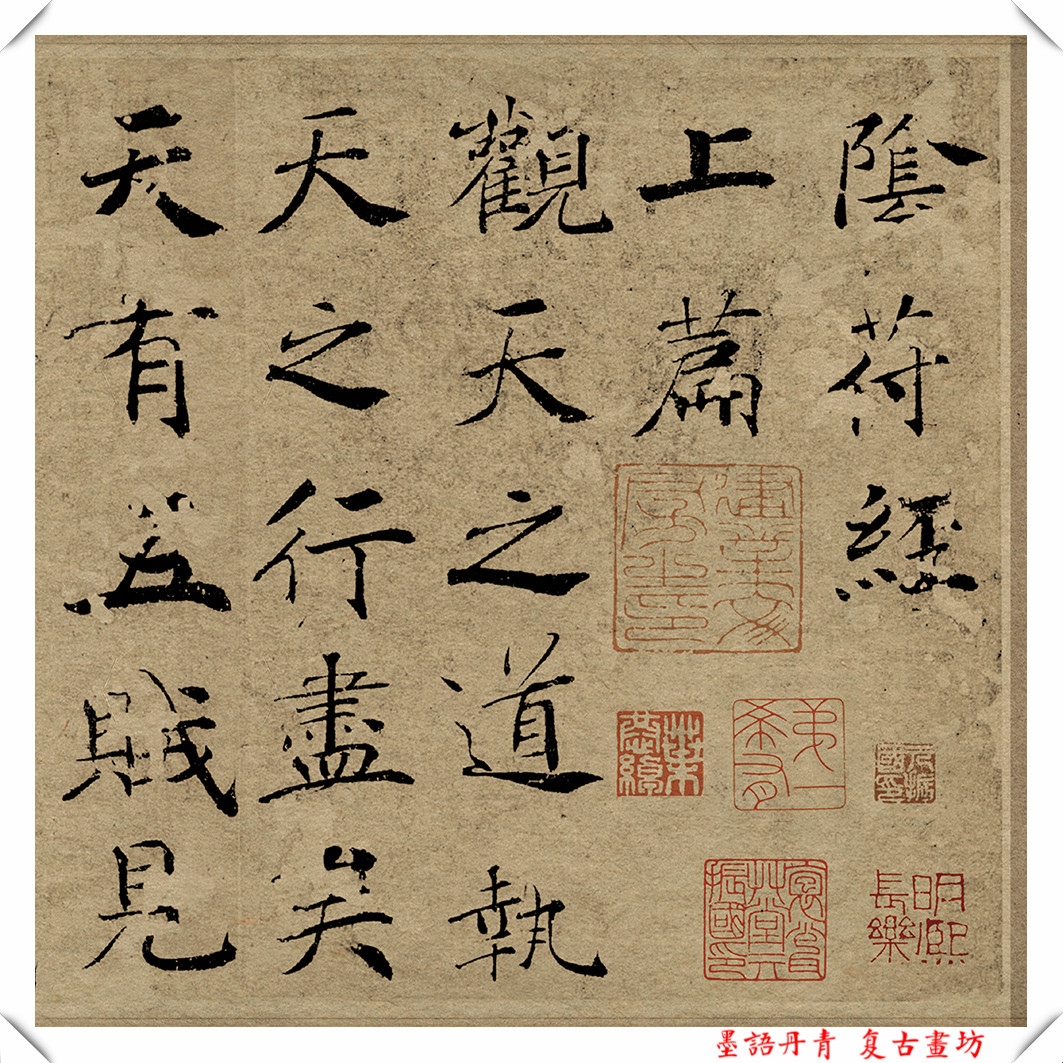 陰符經
上篇
觀天之道執
天之行盡矣
天有五賊見
明熙
長樂
墨語丹青 复古畫坊